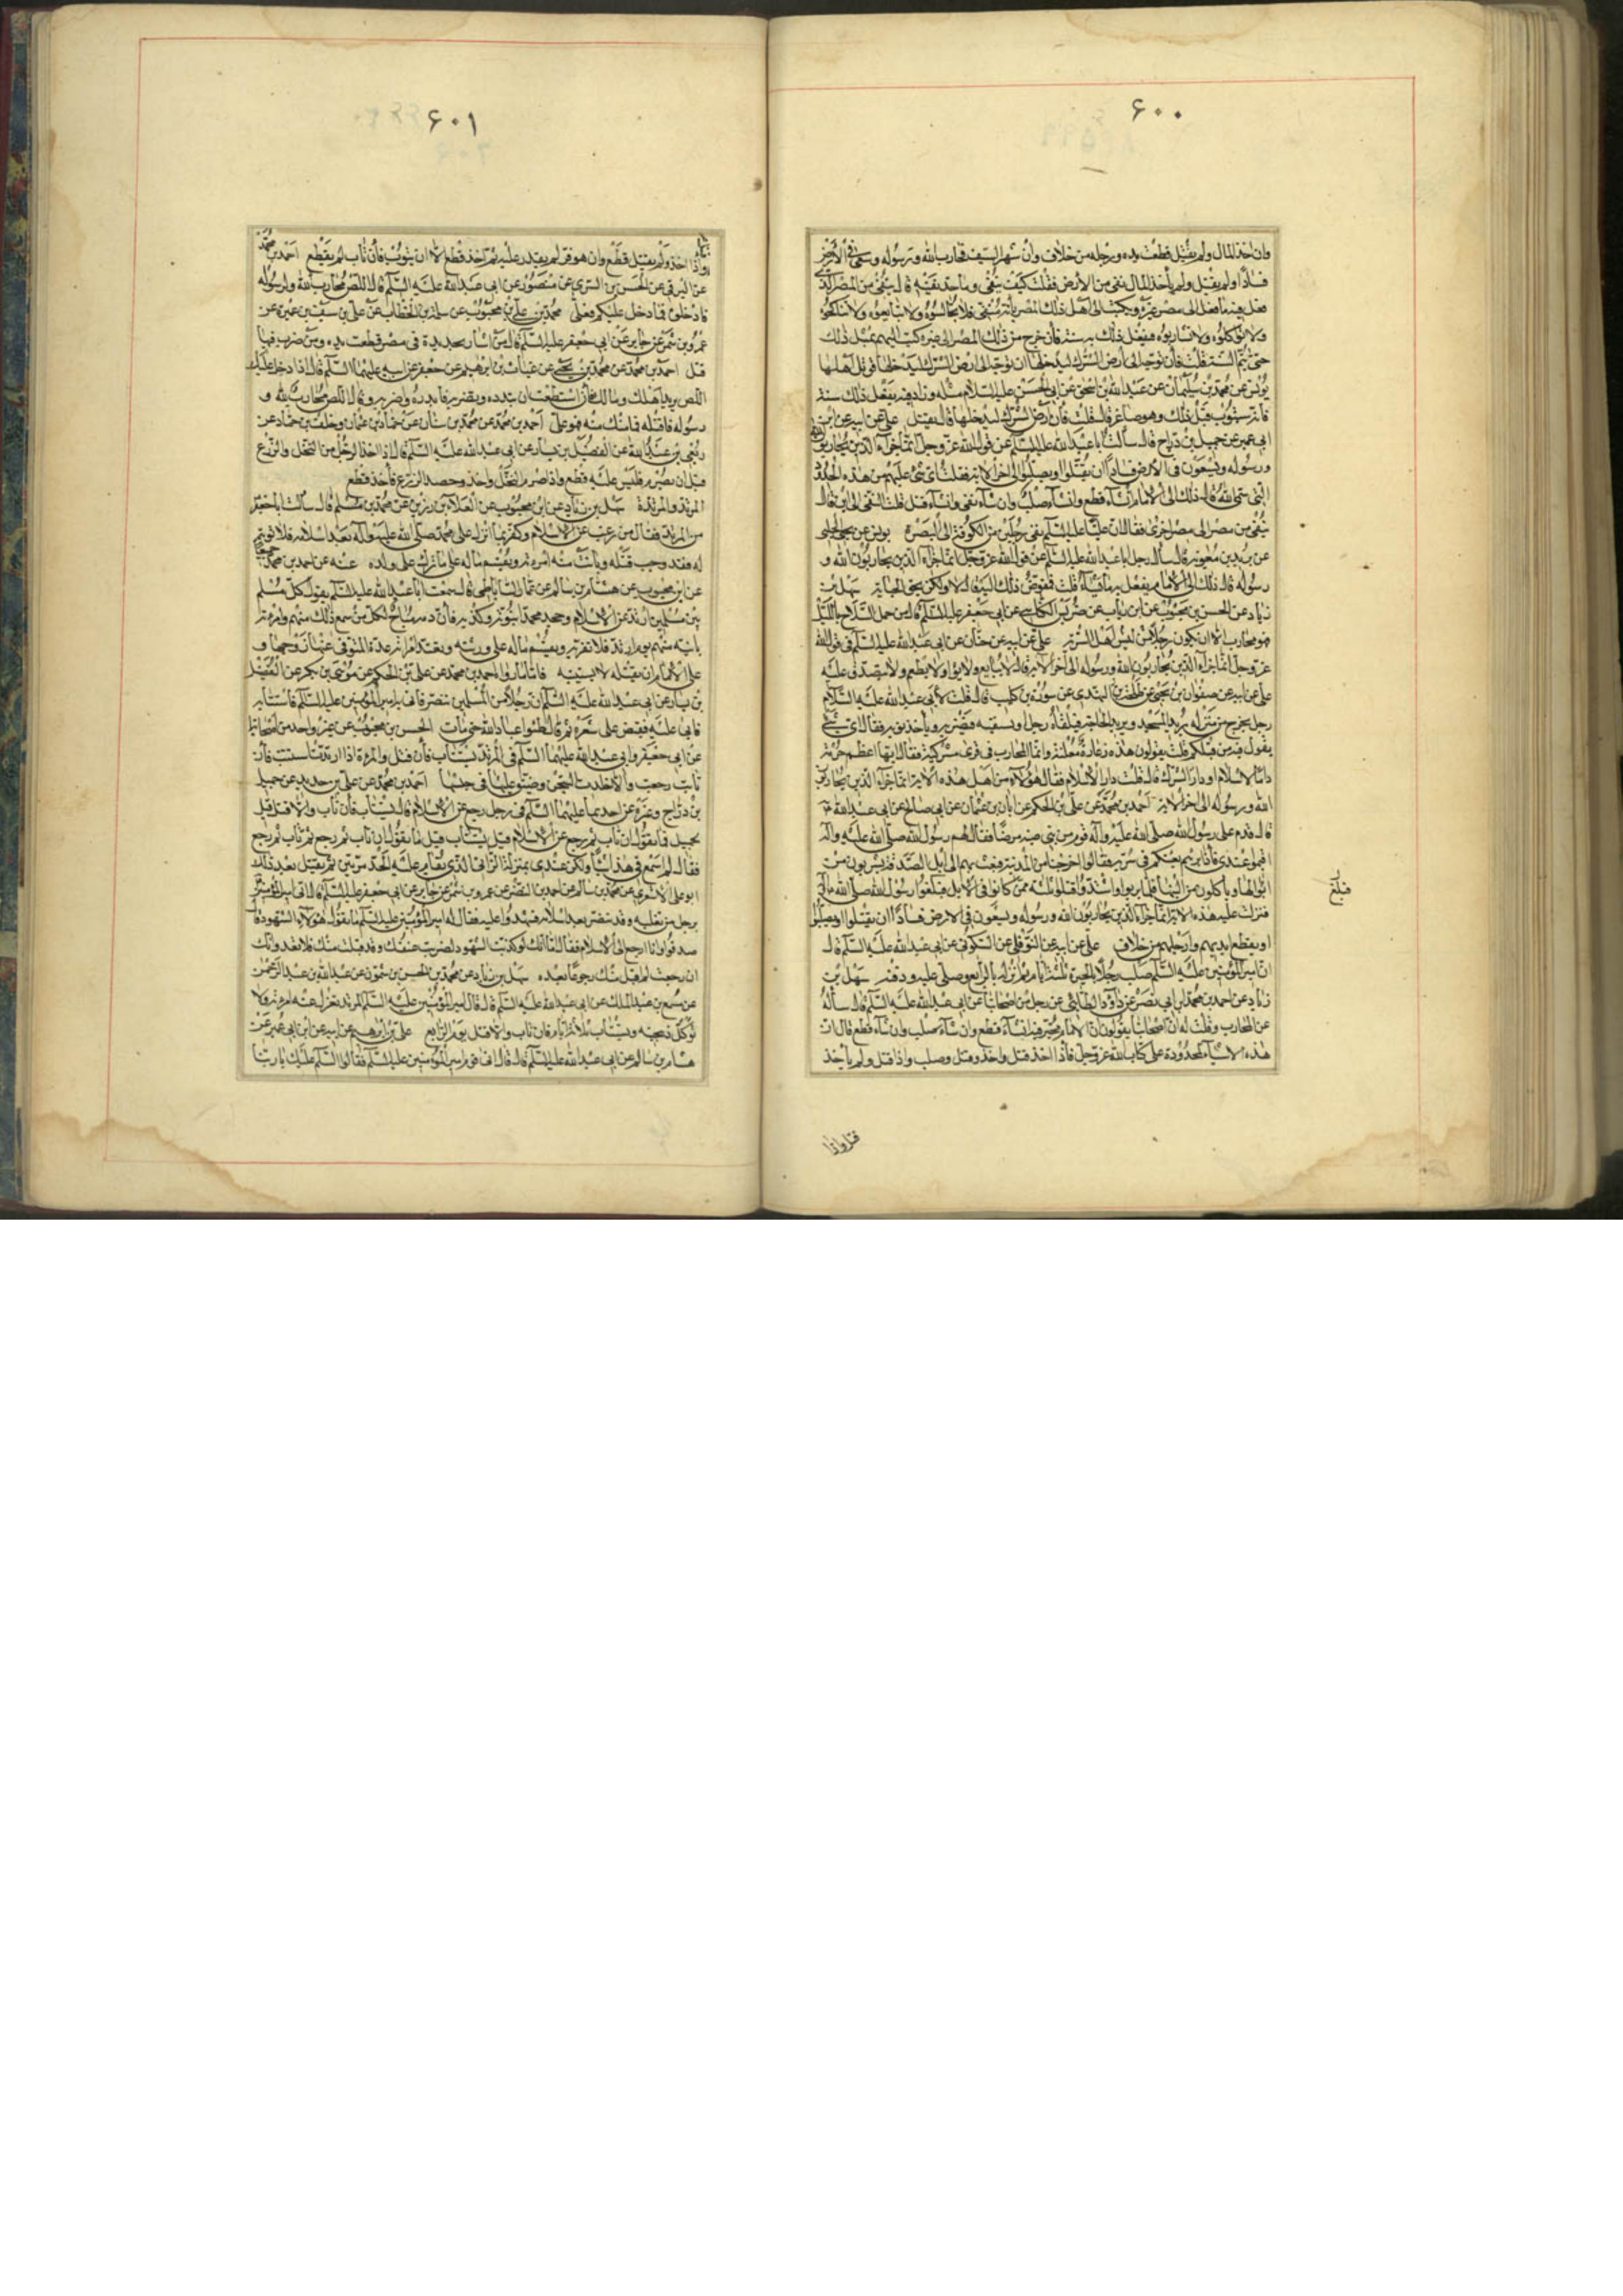 ۶۰۰
وان اخذ المال ولم يقتل قطعت يده ورجله من خلاف وان شهر السيف فحارب الله ورسوله وسعى في الأرض
فسادا ولم يقتل ولم يأخذ المال نفى من الأرض فقلت كيف ينفى وما حد نفيه قال ينفى من المصر الذي
فعل فيه ما فعل الى مصر غيره ويكتب الى اهل ذلك المصر بانه منفى فلا تجالسوه ولا تبايعوه ولا تناكحوه
ولا تؤاكلوه ولا تشاربوه فيفعل ذلك به سنة فان خرج من ذلك المصر الى غيره كتب اليهم بمثل ذلك
حتى تتم السنة قلت فان توجه الى ارض الشرك ليدخلها قال ان توجه الى ارض الشرك ليدخلها قوتل اهلها
يونس عن محمد بن سليمان عن عبيد الله بن اسحق عن ابي الحسن عليه السلام مثله
فانه سيتوب قبل ذلك وهو صاغر قال قلت فان ام ارض الشرك ليدخلها قال يقتل علي عن ابيه عن ابن
ابي عمير عن جميل بن دراج قال سألت ابا عبد الله عليه السلام عن قول الله عز وجل انما جزاء الذين يحاربون الله
ورسوله ويسعون في الارض فسادا ان يقتلوا او يصلبوا الى اخر الاية فقلت اي شئ عليهم من هذه الحدود
التي سمى الله قال ذلك الى الامام ان شاء قطع وان شاء صلب وان شاء نفى وان شاء قتل قلت النفى الى اين قال
ينفى من مصر الى مصر اخرى فقال ان عليا عليه السلام نفى رجلين من الكوفة الى البصرة يونس عن يحيى الحلبي
عن بريد بن معوية قال سأل رجل ابا عبد الله عليه السلام عن قول الله عز وجل انما جزاء الذين يحاربون الله و
رسوله قال ذلك الى الامام يفعل به ما يشاء قلت فمفوض ذلك اليه قال لا ولكن بحق الجناية سهل بن
زياد عن الحسن بن محبوب عن ابن رئاب عن ضريس الكناسي عن ابي جعفر عليه السلام قال من حمل السلاح بالليل
فهو محارب الا ان يكون رجلا ليس من اهل الريبة علي عن ابيه عن حنان عن ابي عبد الله عليه السلام في قول الله
عز وجل انما جزاء الذين يحاربون الله ورسوله الى اخر الاية قال لا يبايع ولا يؤا ولا يطعم ولا يتصدق عليه
علي عن ابيه عن صفوان بن يحيى عن طلحة النهدي عن سورة بن كليب قال قلت لابي عبد الله عليه السلام
رجل يخرج من منزله يريد المسجد او يريد الحاجة فيلقاه رجل او يستقفيه فيضربه ويأخذ ثوبه فقال اي شئ
يقول فيه من قبلكم قلت يقولون هذه دغارة معلنة وانما المحارب في قرى مشركية فقال ايهما اعظم حرمة
دار الاسلام او دار الشرك قال قلت دار الاسلام فقال هؤلاء من اهل هذه الاية انما جزاء الذين يحاربون
الله ورسوله الى اخر الاية احمد بن محمد عن علي بن الحكم عن ابان بن عثمان عن ابي صالح عن ابي عبد الله
قال قدم على رسول الله صلى الله عليه وآله قوم من بني ضبة مرضا فقال لهم رسول الله صلى الله عليه وآله
اقيموا عندي فاذا برئتم بعثتكم في سرية فقالوا اخرجنا من المدينة فبعث بهم الى ابل الصدقة يشربون من
ابوالها ويأكلون من البانها فلما برئوا واشتدوا قتلوا ثلثة ممن كانوا في الابل فبلغوا رسول الله صلى الله عليه وآله
فنزلت عليه هذه الاية انما جزاء الذين يحاربون الله ورسوله ويسعون في الارض فسادا ان يقتلوا او يصلبوا
او يقطع ايديهم وارجلهم من خلاف علي عن ابيه عن النوفلي عن السكوني عن ابي عبد الله عليه السلام قال
ان امير المؤمنين عليه السلام صلب رجلا بالحيرة ثلثة ايام ثم انزله يوم الرابع وصلى عليه ودفنه سهل بن
زياد عن احمد بن محمد بن ابي نصر عن داود الطائي عن رجل من اصحابنا عن ابي عبد الله عليه السلام قال سألته
عن المحارب وقلت له ان اصحابنا يقولون ان الامام مخير فيه ان شاء قطع وان شاء صلب وان شاء قتل فقال ان
هذه الاشياء محدودة على كتاب الله عز وجل فاذا اخذ قتل واخذ وقتل وصلب واذا قتل ولم يأخذ
قتل واذا
۶۰۱
واذا اخذ ولم يقتل قطع وان هو فر لم يقدر عليه ثم اخذ قطع الا ان يتوب فان تاب لم يقطع احمد بن محمد
عن البرقي عن الحسن بن السري عن منصور عن ابي عبد الله عليه السلام قال اللص محارب الله ولرسوله
فاقتلوه فما دخل عليكم فعلي محمد بن علي بن محبوب عن سلمة بن الخطاب عن علي بن سيف بن عميرة عن
عمرو بن شمر عن جابر عن ابي جعفر عليه السلام قال من اشار بحديدة في مصر قطعت يده ومن ضرب فيها
قتل احمد بن محمد عن محمد بن يحيى عن غياث بن ابراهيم عن جعفر عن ابيه عليهما السلام قال اذا دخل عليك
اللص يريد اهلك ومالك فان استطعت ان تبدره وتضربه فابدره واضربه وقال اللص محارب لله و
رسوله فاقتله فما منك منه فهو علي احمد بن محمد عن محمد بن سنان عن حماد بن عثمان وخلف بن حماد عن
ربعي بن عبد الله عن الفضيل بن يسار عن ابي عبد الله عليه السلام قال اذا اخذ الرجل من النخل والزرع
قبل ان يصرم فليس عليه قطع واذا صرم النخل واخذ وحصد الزرع فاخذ قطع
المرتد والمرتدة سهل بن زياد عن ابن محبوب عن العلاء بن رزين عن محمد بن مسلم قال سألت ابا جعفر
عن المرتد فقال من رغب عن الاسلام وكفر بما انزل على محمد صلى الله عليه وآله بعد اسلامه فلا توبة
له وقد وجب قتله وبانت منه امرأته ويقسم ماله على ما ترك على ولده عنه عن احمد بن محمد جميعا
عن ابن محبوب عن هشام بن سالم عن عمار الساباطي قال سمعت ابا عبد الله عليه السلام يقول كل مسلم
بين مسلمين ارتد عن الاسلام وجحد محمدا نبوته وكذبه فان دمه مباح لكل من سمع ذلك منه وامرأته
بائنة منه يوم ارتد فلا تقربه ويقسم ماله على ورثته وتعتد امرأته عدة المتوفى عنها زوجها و
على الامام ان يقتله ولا يستتيبه فاما ما رواه احمد بن محمد عن علي بن الحكم عن موسى بن بكر عن الفضيل
بن يسار عن ابي عبد الله عليه السلام ان رجلا من المسلمين تنصر فاتي به امير المؤمنين عليه السلام فاستتابه
فابى عليه فقبض على شعره ثم قال طئوا عباد الله حتى مات الحسن بن محبوب عن غير واحد من اصحابنا
عن ابي جعفر وابي عبد الله عليهما السلام في المرتد يستتاب فان تاب والا قتل والمرأة اذا ارتدت استتيبت فان
تابت رجعت والا خلدت السجن وضيق عليها في حبسها احمد بن محمد عن علي بن حديد عن جميل
بن دراج وغيره عن احدهما عليهما السلام في رجل رجع عن الاسلام قال يستتاب فان تاب والا قتل قيل
لجميل فما تقول ان تاب ثم رجع عن الاسلام قيل يستتاب قيل فما تقول ان تاب ثم رجع ثم تاب ثم رجع
فقال لم اسمع في هذا شيئا ولكن عندي بمنزلة الزاني الذي يقام عليه الحد مرتين ثم يقتل بعد ذلك
ابو علي الاشعري عن محمد بن سالم عن احمد بن النضر عن عمرو بن شمر عن جابر عن ابي جعفر عليه السلام قال اتى امير المؤمنين
برجل من ثعلبة وقد تنصر بعد اسلامه فشهدوا عليه فقال له امير المؤمنين عليه السلام ما تقول هؤلاء الشهود قال
صدقوا وانا ارجع الى الاسلام فقال اما انك لو كذبت الشهود لضربت عنقك وقد قبلت منك فلا تعد وانك
ان رجعت لم اقبل منك رجوعا بعده سهل بن زياد عن محمد بن الحسن بن شمون عن عبد الله بن عبد الرحمن
عن مسمع بن عبد الملك عن ابي عبد الله عليه السلام قال قال امير المؤمنين عليه السلام المرتد تعزل عنه امرأته ولا
تؤكل ذبيحته ويستتاب ثلاثة ايام فان تاب والا قتل يوم الرابع علي بن ابراهيم عن ابيه عن ابن ابي عمير عن
هشام بن سالم عن ابي عبد الله عليه السلام قال قال اتى قوم امير المؤمنين عليه السلام فقالوا السلام عليك يا ربنا